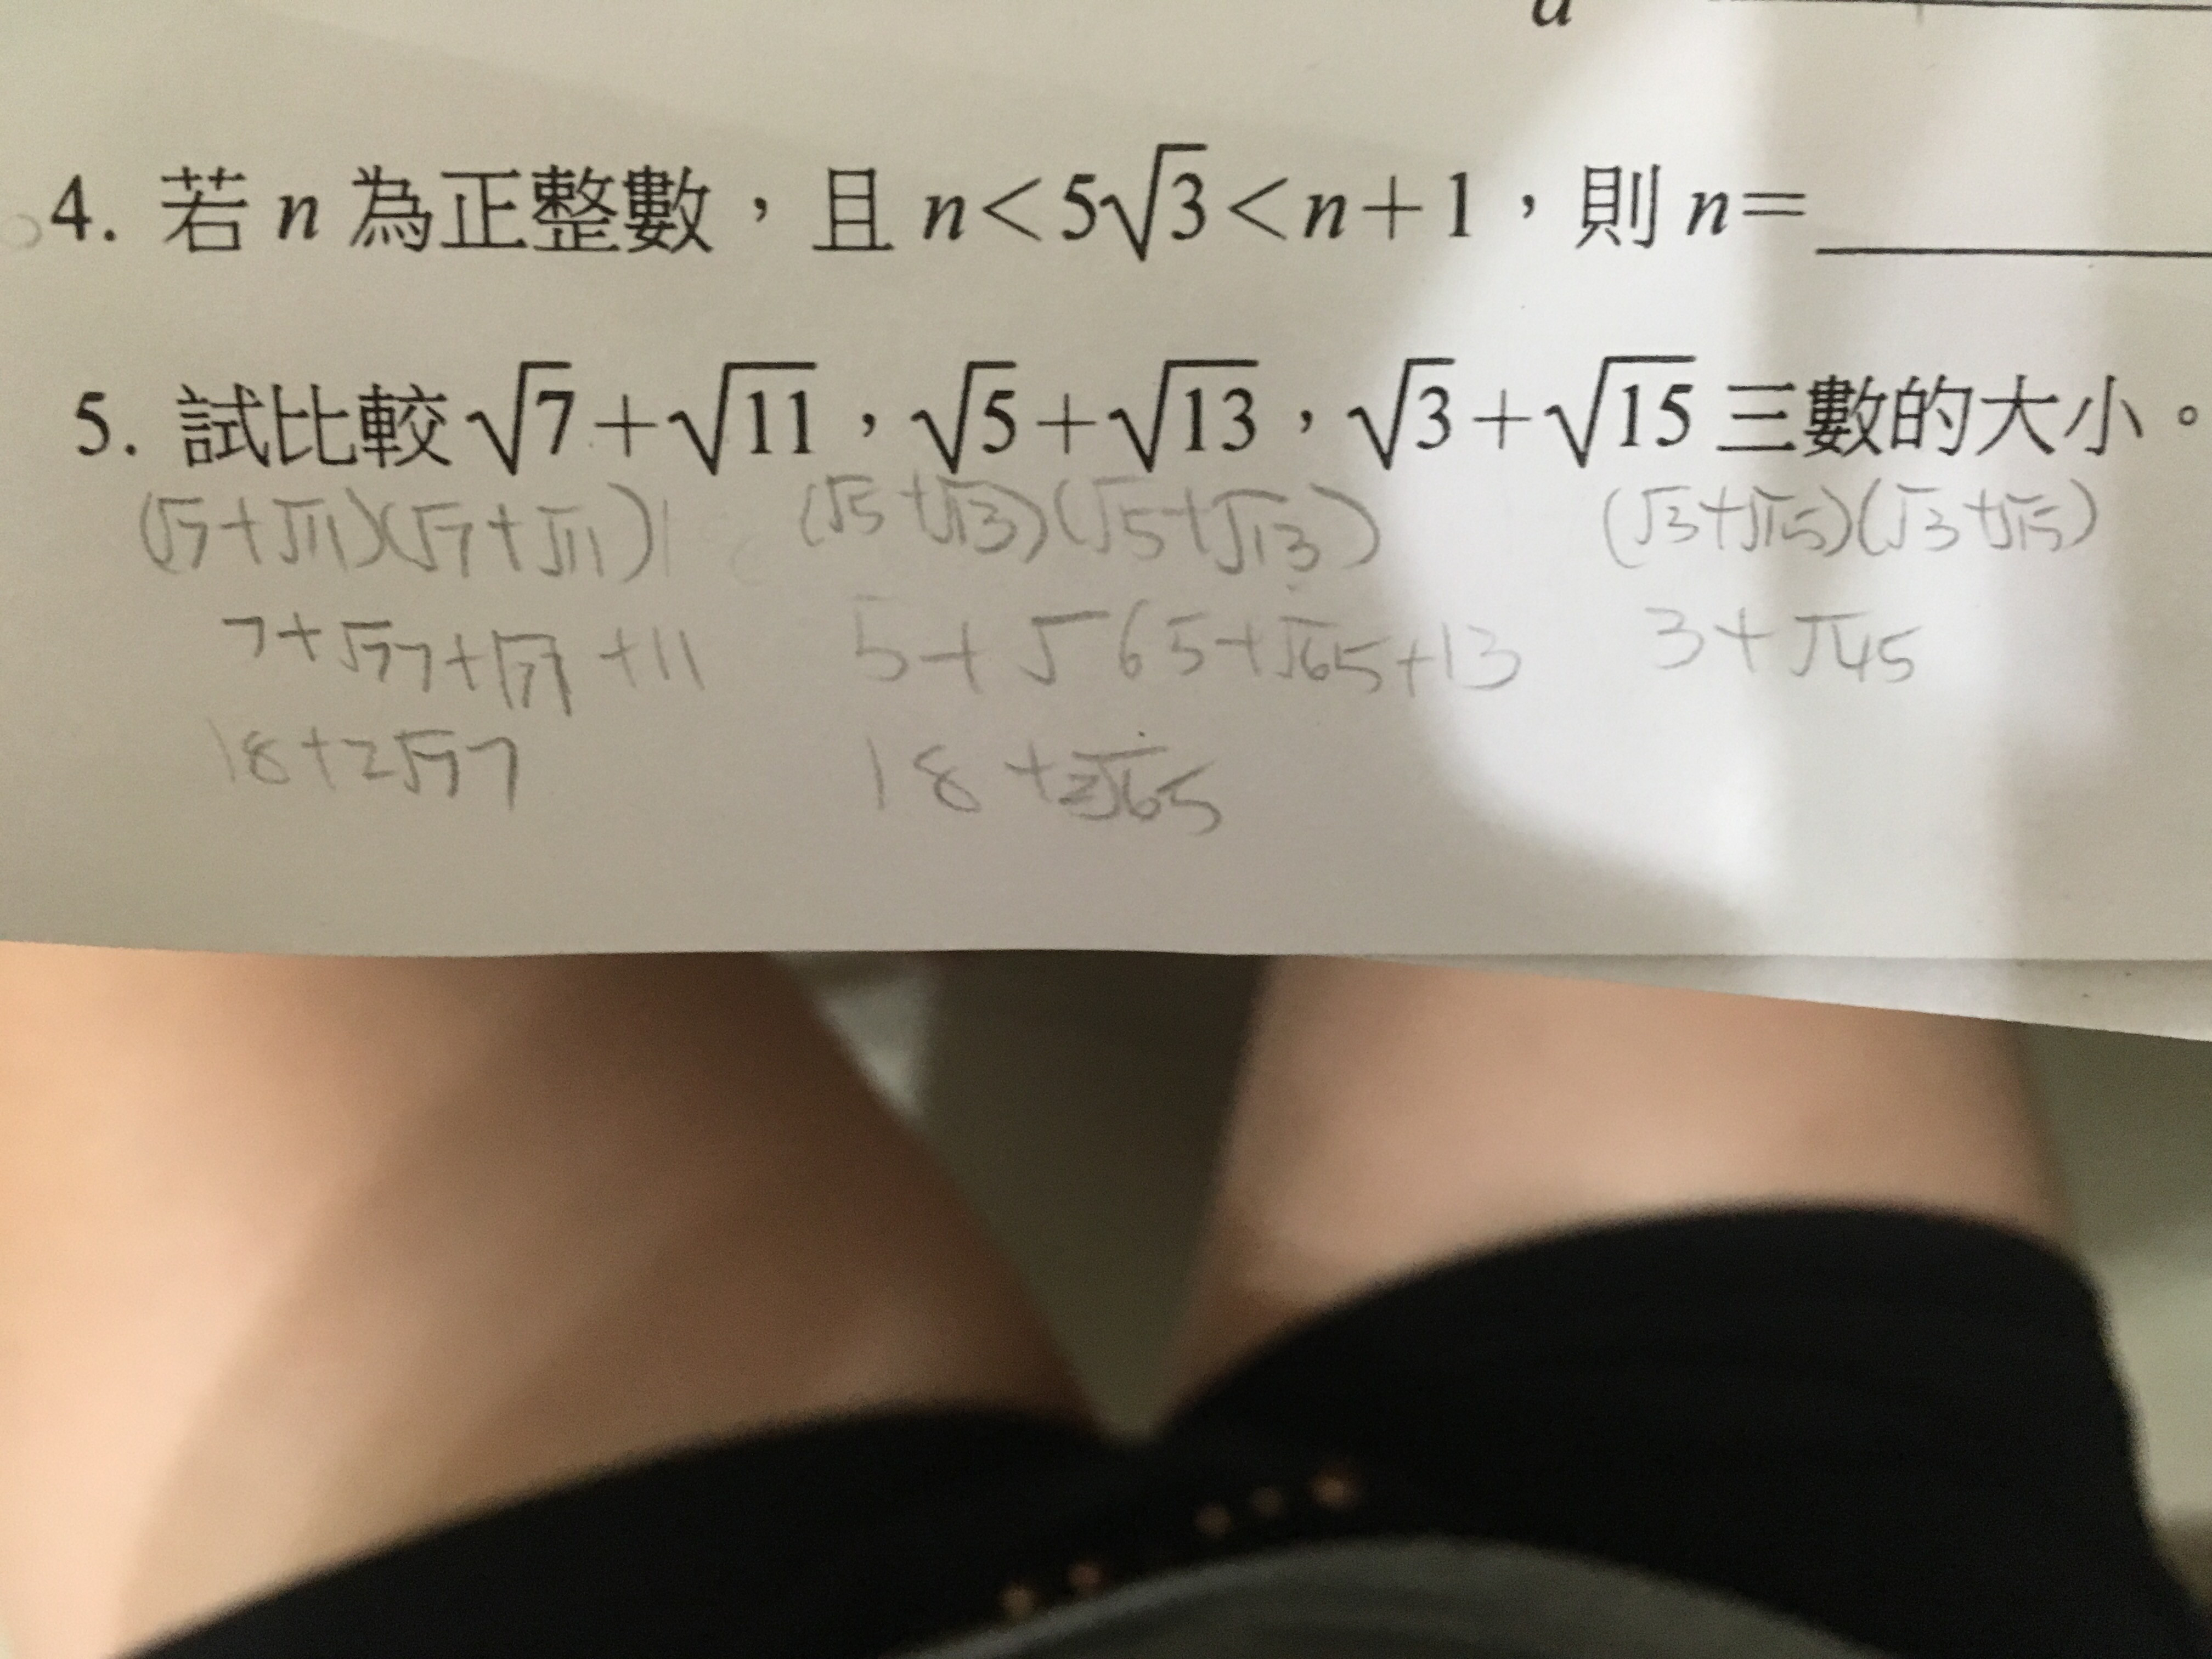 a
4. 若 n 為正整數，且 n<5√3<n+1，則 n=
5. 試比較√7+√11，√5+√13，√3+√15三數的大小。
(√7+√11)(√7+√11) (√5+√13)(√5+√13) (√3+√15)(√3+√15)
7+√77+√77+11 5+√65+√65+13 3+√45
18+2√77 18+2√65